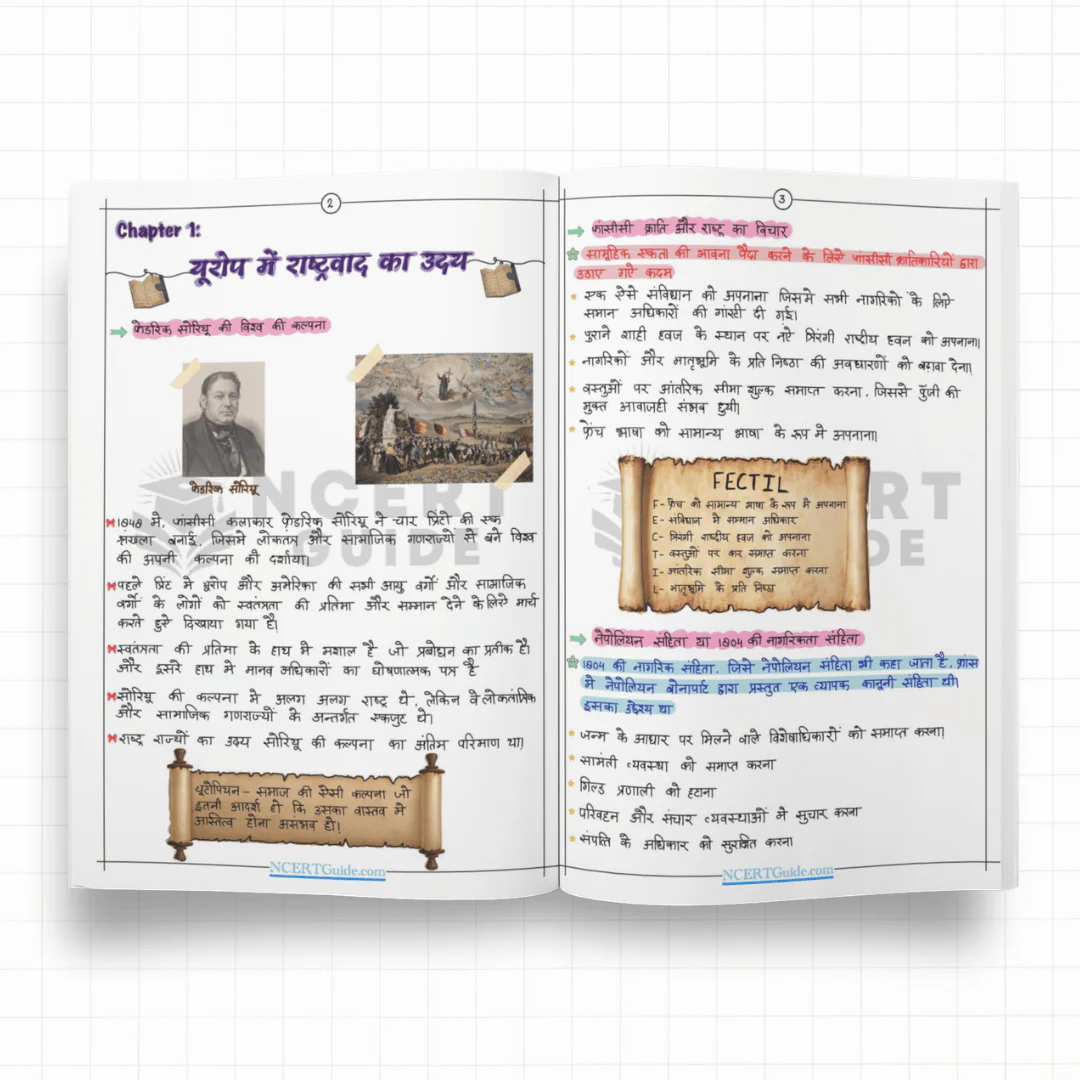 2
Chapter 1:
यूरोप में राष्ट्रवाद का उदय
फ्रेडरिक सोरियू की विश्व की कल्पना
फ्रेडरिक सोरियू
1848 में, फ्रांसीसी कलाकार फ्रेडरिक सोरियू ने चार प्रिंटो की एक
श्रंखला बनाई, जिसमे लोकतंत्र और सामाजिक गणराज्यों से बने विश्व
की अपनी कल्पना को दर्शाया।
पहले प्रिंट मे यूरोप और अमेरिका की सभी आयु वर्गो और सामाजिक
वर्गो के लोगों को स्वतंत्रता की प्रतिमा और सम्मान देने के लिए मार्च
करते हुए दिखाया गया है।
स्वतंत्रता की प्रतिमा के हाथ मे मशाल है जो प्रबोधन का प्रतीक है।
और दूसरे हाथ मे मानव अधिकारों का घोषणात्मक पत्र है
सोरियू की कल्पना मे अलग अलग राष्ट्र थे, लेकिन वे लोकतांत्रिक
और सामाजिक गणराज्यों के अन्तर्गत एकजुट थे।
राष्ट्र राज्यों का उदय सोरियू की कल्पना का अंतिम परिमाण था।
यूटोपियन - समाज की ऐसी कल्पना जो
इतनी आदर्श हो कि उसका वास्तव मे
आस्तित्व होना असंभव हो।
NCERTGuide.com
3
फ्रांसीसी क्रांति और राष्ट्र का विचार
सामूहिक एकता की भावना पैदा करने के लिए फ्रांसीसी क्रांतिकारियों द्वारा
उठाए गऐ कदम
एक ऐसे संविधान को अपनाना जिसमे सभी नागरिको के लिए
समान अधिकारों की गांरटी दी गई।
पुराने शाही ध्वज के स्थान पर नऐ त्रिरंगी राष्टीय ध्वज को अपनाना।
नागरिकों और मातृभूमि के प्रति निष्ठा की अवधारणों को बढ़ावा देना।
वस्तुओं पर आंतरिक सीमा शुल्क समाप्त करना, जिससे पुँजी की
मुक्त आवाजही संभव हुयी।
फ्रेंच भाषा को सामान्य भाषा के रूप मे अपनाना।
FECTIL
F- फ्रेंच को सामान्य भाषा के रूप मे अपनाना
E- संविधान मे सम्मान अधिकार
C- त्रिरंगी राष्टीय ध्वज को अपनाना
T- वस्तुओं पर कर समाप्त करना
I- आंतरिक सीमा शुल्क समाप्त करना
L- मातृभूमि के प्रति निष्ठा
नेपोलियन संहिता या 1804 की नागरिकता संहिता
1804 की नागरिक संहिता, जिसे नेपोलियन संहिता भी कहा जाता है, फ्रांस
मे नेपोलियन बोनापार्ट द्वारा प्रस्तुत एक व्यापक कानूनी संहिता थी।
इसका उद्देश्य था
जन्म के आधार पर मिलने वाले विशेषाधिकारों को समाप्त करना।
सामंती व्यवस्था को समाप्त करना
गिल्ड प्रणाली को हटाना
परिवहन और संचार व्यवस्थाओं मे सुधार करना
संपत्ति के अधिकार को सुरक्षित करना
NCERTGuide.com
NCERT
GUIDE
NCERT
GUIDE